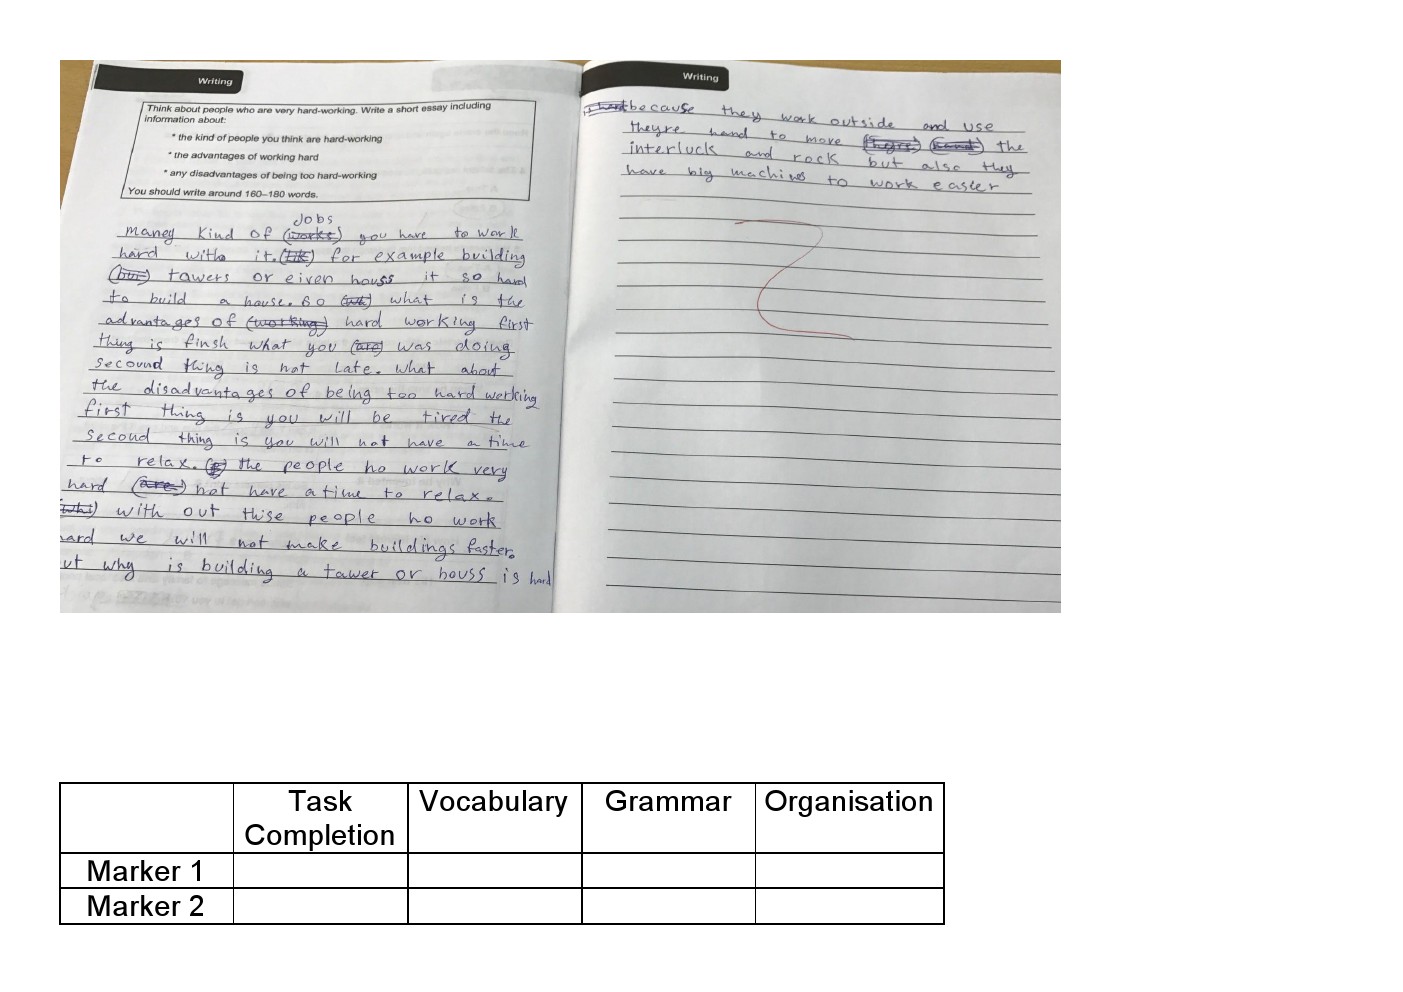 Writing
Think about people who are very hard-working. Write a short essay including
information about:
* the kind of people you think are hard-working
* the advantages of working hard
* any disadvantages of being too hard-working
You should write around 160–180 words.
Jobs
maney kind of (works) you have to work
hard with it. for example building
(bui) tawers or eiven houss it so hard
to build a house. so what is the
advantages of (working) hard working first
thing is finsh what you (are) was doing
secound thing is not late. what about
the disadvantages of being too hard werking
first thing is you will be tired the
second thing is you will not have a time
to relax. the people ho work very
hard (are) not have a time to relax.
with out thise people ho work
hard we will not make buildings faster.
ut why is building a tawer or houss is hard
Writing
because they work outside and use
theyre hand to move (theyre) (hand) the
interluck and rock but also they
have big machines to work easter
Task
Completion
Vocabulary
Grammar
Organisation
Marker 1
Marker 2